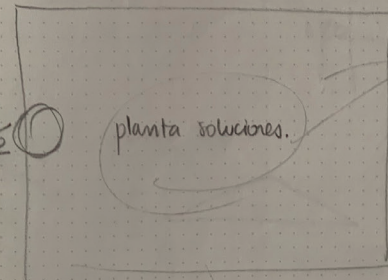 planta soluciones.